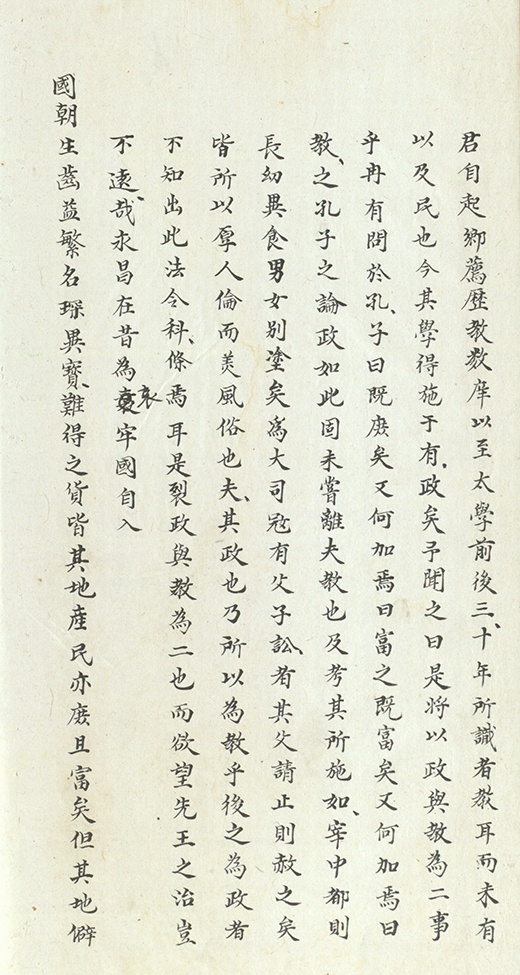 君自起鄉薦歷教数庠以至太學前後三十年所識者教耳而未有
以及民也今其學得施于有政矣予聞之曰是將以政與教為二事
乎冉有問於孔子曰既庶矣又何加焉曰富之既富矣又何加焉曰
教之孔子之論政如此固未嘗離夫教也及考其所施如宰中都則
長幼異食男女別塗矣為大司冦有父子訟者其父請止則赦之矣
皆所以厚人倫而美風俗也夫其政也乃所以為教乎後之為政者
不知出此法令科條焉耳是裂政與教為二也而欲望先王之治豈
不遠哉永昌在昔為哀牢國自入
國朝生齒益繁名琛異寶難得之貨皆其地産民亦庶且富矣但其地僻